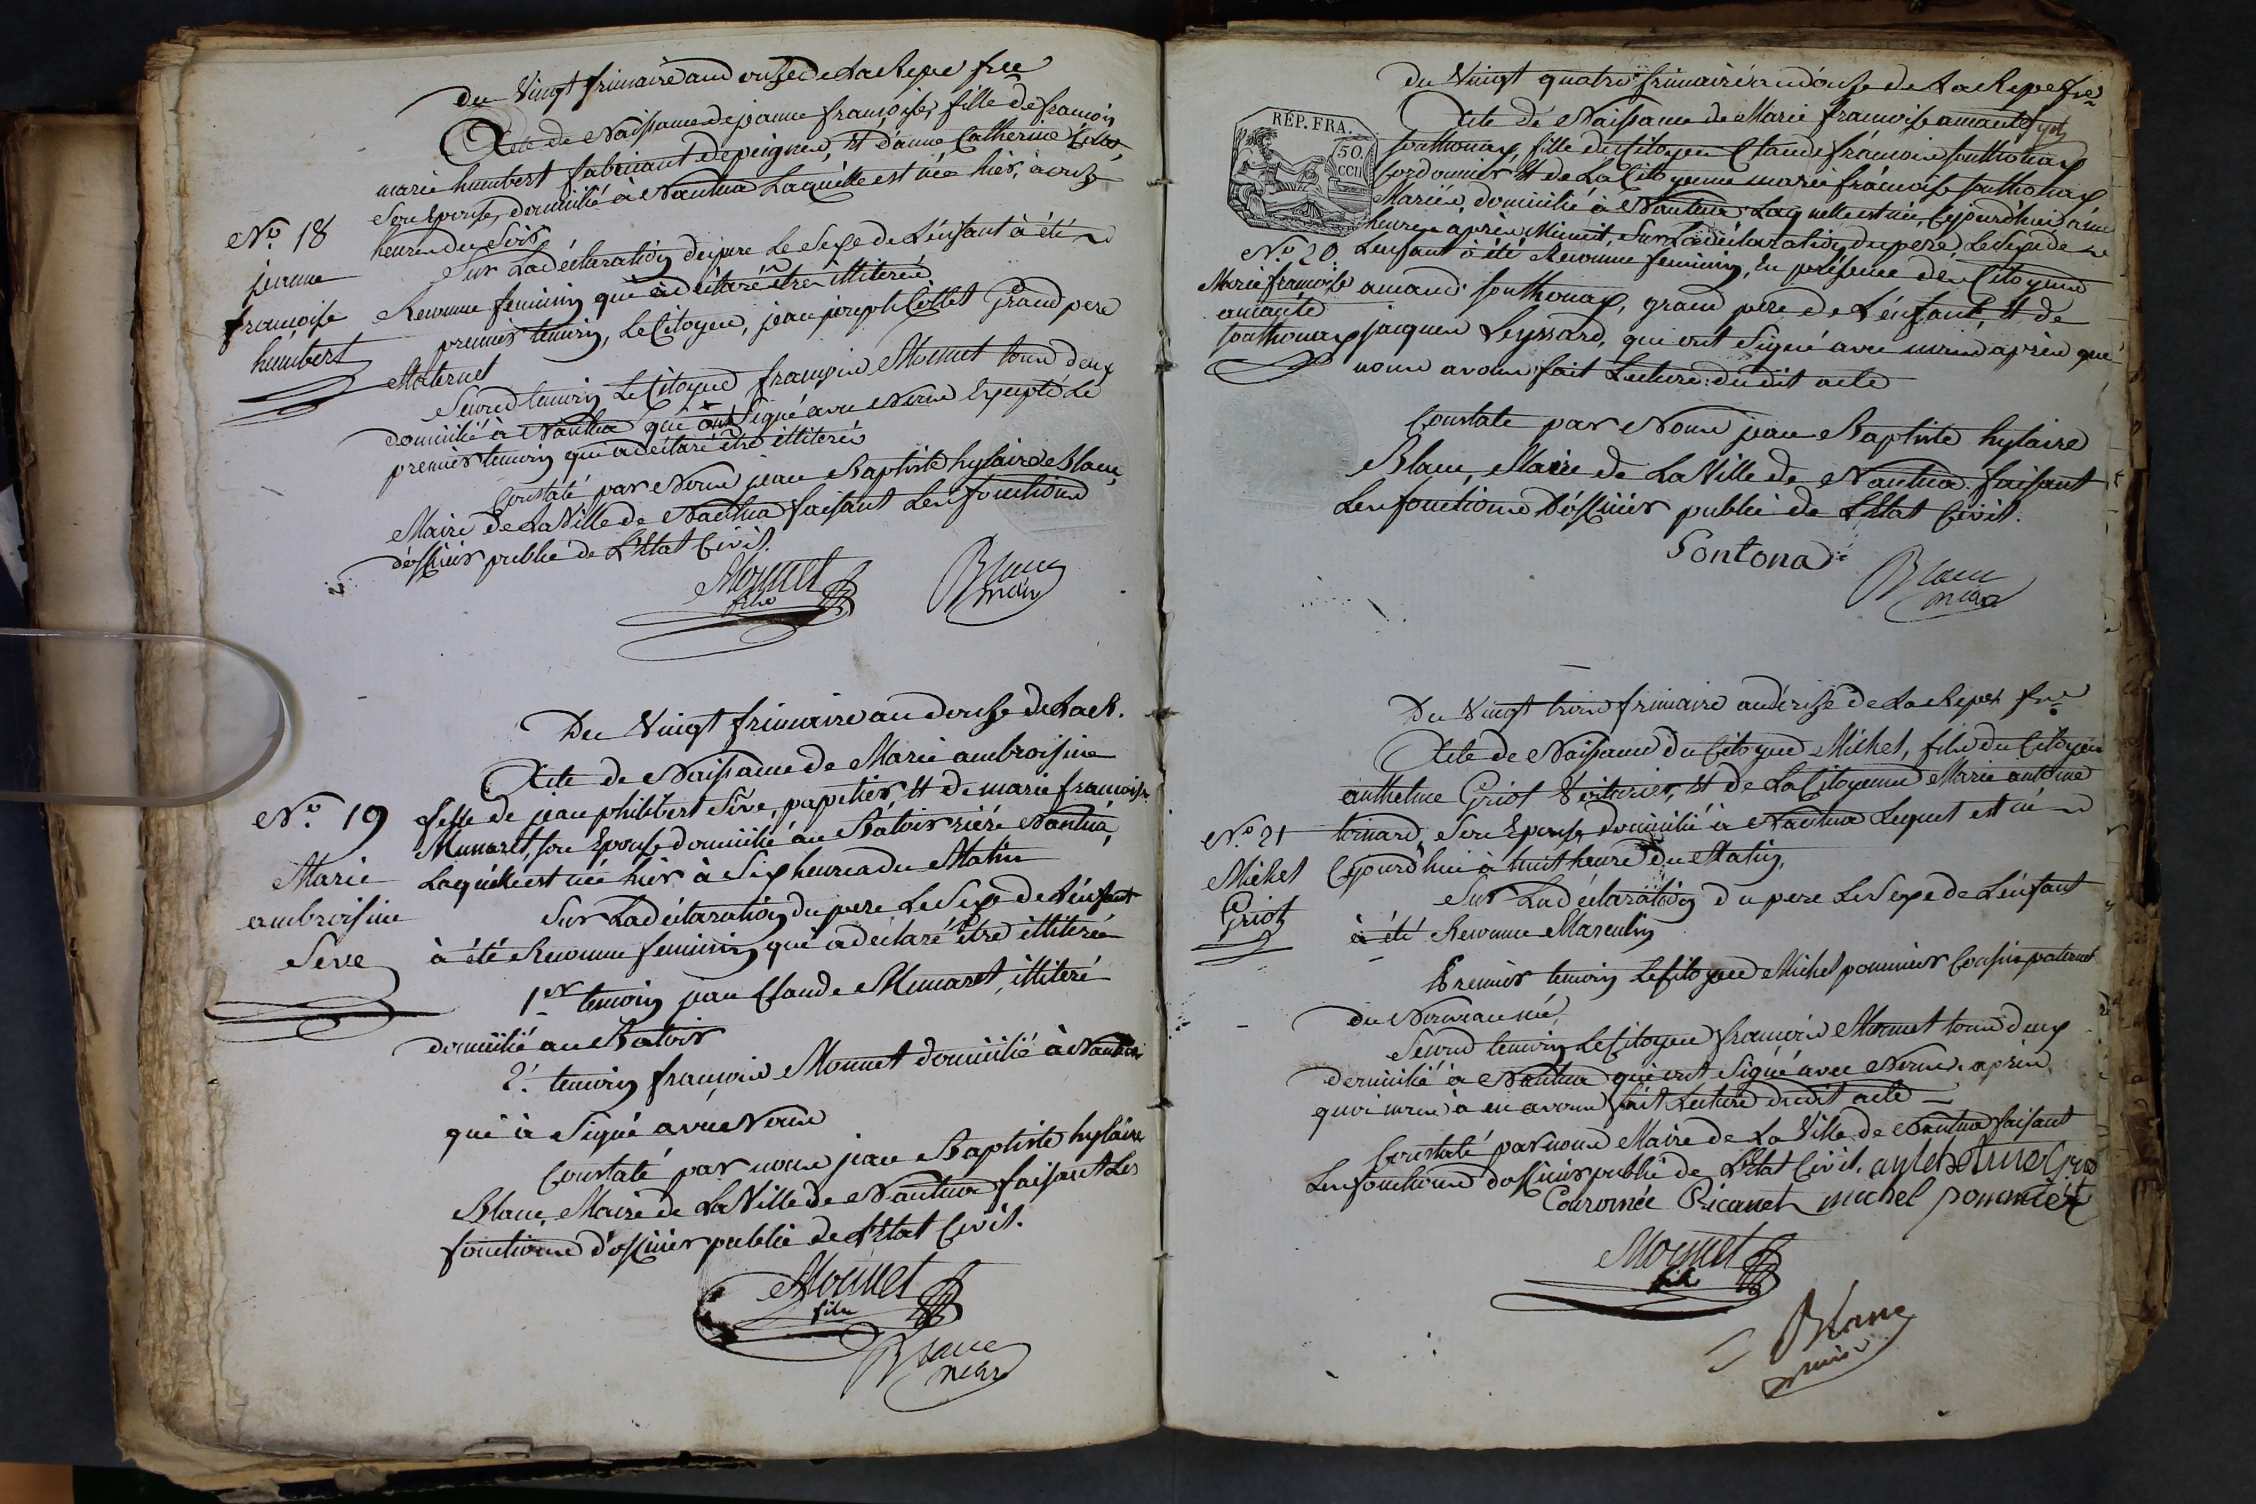 Du Vingt frimaire and onze de La Repe fse
Acte de Naissance de jeanne françoise, fille de françois
marie humbert fabricant de peignes, Et d'anne Catherine Collet,
Son Epouse, domicilié à Nantua Laquelle est née hier, à onze
heures du Soir,
Sur La déclaration du pere Le Sexe de L'énfant à été
Reconnue feminin qui à déclaré être illiteré
premier temoin, Le Citoyen, jean joseph Collet Grand pere
Maternel
Second temoin Le Citoyen françois Monnet tous deux
domicilié à Nantua qui ont Signé avec Nous Excepté Le
premier temoin qui à déclaré être illiteré
Constaté par Nous jean Baptiste hylaire Blanc,
Maire de La Ville de Nantua faisant Les fonctions
d'officier public de L'Etat Civil.
Monnet
fils
Blanc
maire
No. 18
jeanne
françoise
humbert
Du Vingt frimaire an douze de La R.
Acte de Naissance de Marie ambroisine
fille de jean philibert Sêve, papetier Et de marie françoise
Munaret, son Epouse domicilié au Batoir riére Nantua,
Laquelle est née hier à Six heures du Matin
Sur La déclaration du pere Le Sexe de L'énfant
à été Reconnue feminin qui à déclaré être illiteré
1er temoin jean Claude Munaret, illiteré
domicilié au Batoir
2e. temoin françois Monnet domicilié à Nantua
qui à Signé avec Nous
Constaté par nous jean Baptiste hylaire
Blanc, Maire de La Ville de Nantua faisant Les
fonctions d'officier public de L'Etat Civil.
Monnet
fils
Blanc
maire
No. 19
Marie
ambroisine
Seve
Du Vingt quatre frimaire an douze de La Repe fse
Acte de Naissance de Marie françoise amante
Southonax, fille du Citoyen Claude françois Southonax
Cordonnier Et de La Citoyenne marie françoise Southonax
Mariés, domicilié à Nantua Laquelle est née, Cejourd'hui à une
heure après Minuit, Sur La déclaration du pere Le Sexe de
L'enfant à été Reconnue feminin, En présence des Citoyens
amand Southonax, grand pere de L'énfant, Et de
jacques Leyssard, qui ont Signé avec nous après que
nous avons fait Lecture dudit acte
Constate par Nous jean Baptiste hylaire
Blanc, Maire de La Ville de Nantua faisant
Les fonctions D'officier public de L'Etat Civil.
Sontona
Blanc
maire
RÉP. FRA.
50.
CEN
No. 20.
Marie françoise
amante
Southonax
Du Vingt trois frimaire an douze de La Repe fse
Acte de Naissance du Citoyen Michel, fils du Citoyen
anthelme Griot Voiturier, Et de La Citoyenne Marie antoine
Son Epouse domicilié à Nantua Lequel est né
Cejourd'hui à huit heures du Matin,
Sur La déclaration du pere Le Sexe de L'énfant
à été Reconnue Masculin
Premier temoin Le Citoyen Michel pommier Cousin paternel
du Nouveau né,
Second temoin Le Citoyen françois Monnet tous deux
domicilié à Nantua qui ont Signé avec Nous après
quoi nous en avons fait Lecture dudit acte
Constaté par nous Maire de La Ville de Nantua faisant
Les fonctions d'officier public de L'Etat Civil.
michel pommier
Monnet
fils
Blanc
maire
No. 21
Michel
Griot